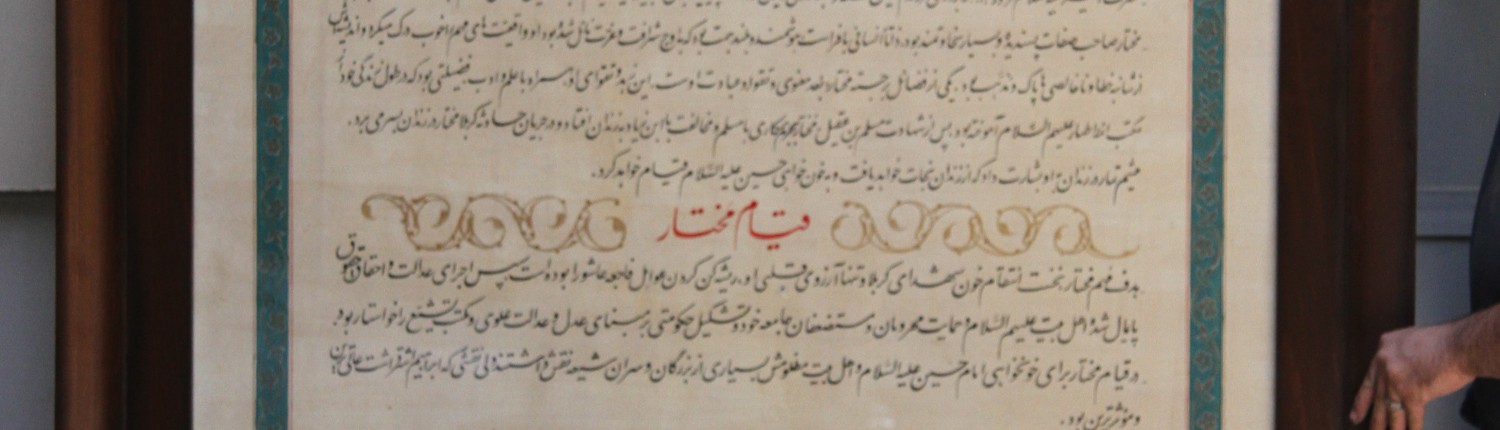 مختار صاحب صفات پسندیده و بسیار سخاوتمند بود. ذاتاً انسانی با فراست هوشمند و بلند همت بود که به اوج شرافت و عزت نائل شده بود او واقعیت های مهم را خوب درک میکرد و اندیشه اش
از شائبه خطا و ناخالصی ها پاک و مهذب بود. یکی از فضائل برجسته مختار بعد معنوی و تقوا و عبادت اوست. این زهد و تقوای او، همراه با علم و ادب فضیلتی بود که در طول زندگی خود از
مکتب ائمه اطهار علیهم السلام آموخته بود. پس از شهادت مسلم بن عقیل مختار بجرم همکاری با مسلم و مخالفت با ابن زیاد به زندان افتاد و در جریان حادثه کربلا مختار در زندان بسر می برد.
میثم تمار در زندان به او بشارت داد که از زندان نجات خواهد یافت و به خون خواهی حسین علیه السّلام قیام خواهد کرد.
قیام مختار
هدف مهم مختار، نخست انتقام خون شهدای کربلا و تنها آرزوی قلبی او، ریشه کن کردن عوامل فاجعه عاشورا بوده است. سپس اجرای عدالت و احقاق حقوق
پایمال شده اهل بیت علیهم السّلام و حمایت محرومان و مستضعفان جامعه خود و تشکیل حکومتی بر مبنای عدل و عدالت علوی و مکتب تشیّع را خواستار بود.
در قیام مختار برای خونخواهی امام حسین علیه السّلام و اهل بیت مظلومش بسیاری از بزرگان و سران شیعه نقش داشتند ولی نقشی که ابراهیم اشتر داشت عالی ترین
و موثرترین بود.